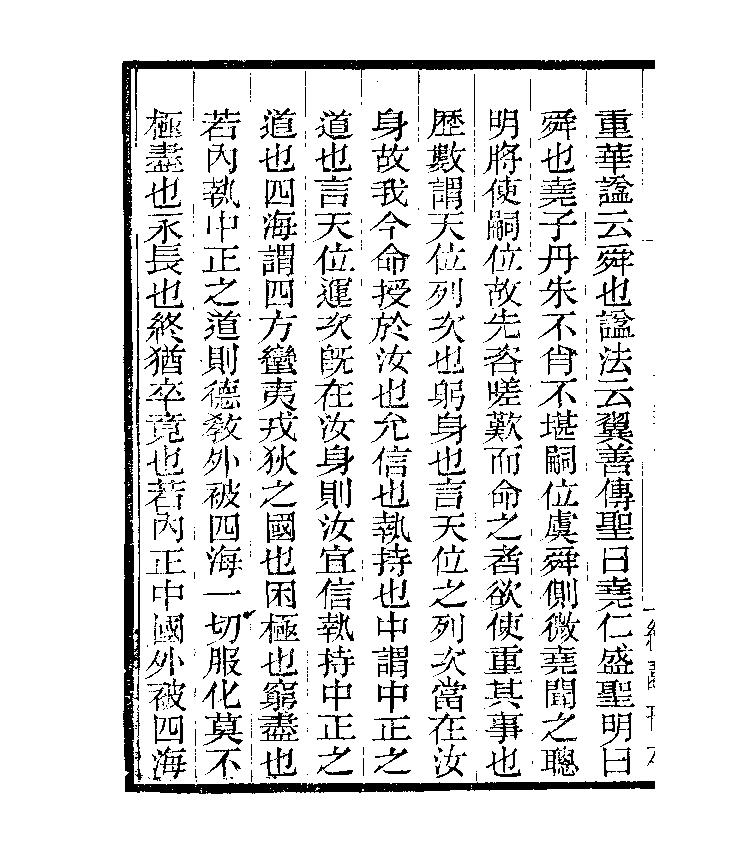 重華謚云舜也謚法云翼善傳聖曰堯仁盛聖明曰
舜也堯子丹朱不肖不堪嗣位虞舜側微堯聞之聰
明將使嗣位故先咨嗟歎而命之者欲使重其事也
歴數謂天位列次也躬身也言天位之列次當在汝
身故我今命授於汝也允信也執持也中謂中正之
道也言天位運次既在汝身則汝宜信執持中正之
道也四海謂四方蠻夷戎狄之國也困極也窮盡也
若內執中正之道則德敎外被四海一切服化莫不
極盡也永長也終猶卒竟也若內正中國外被四海